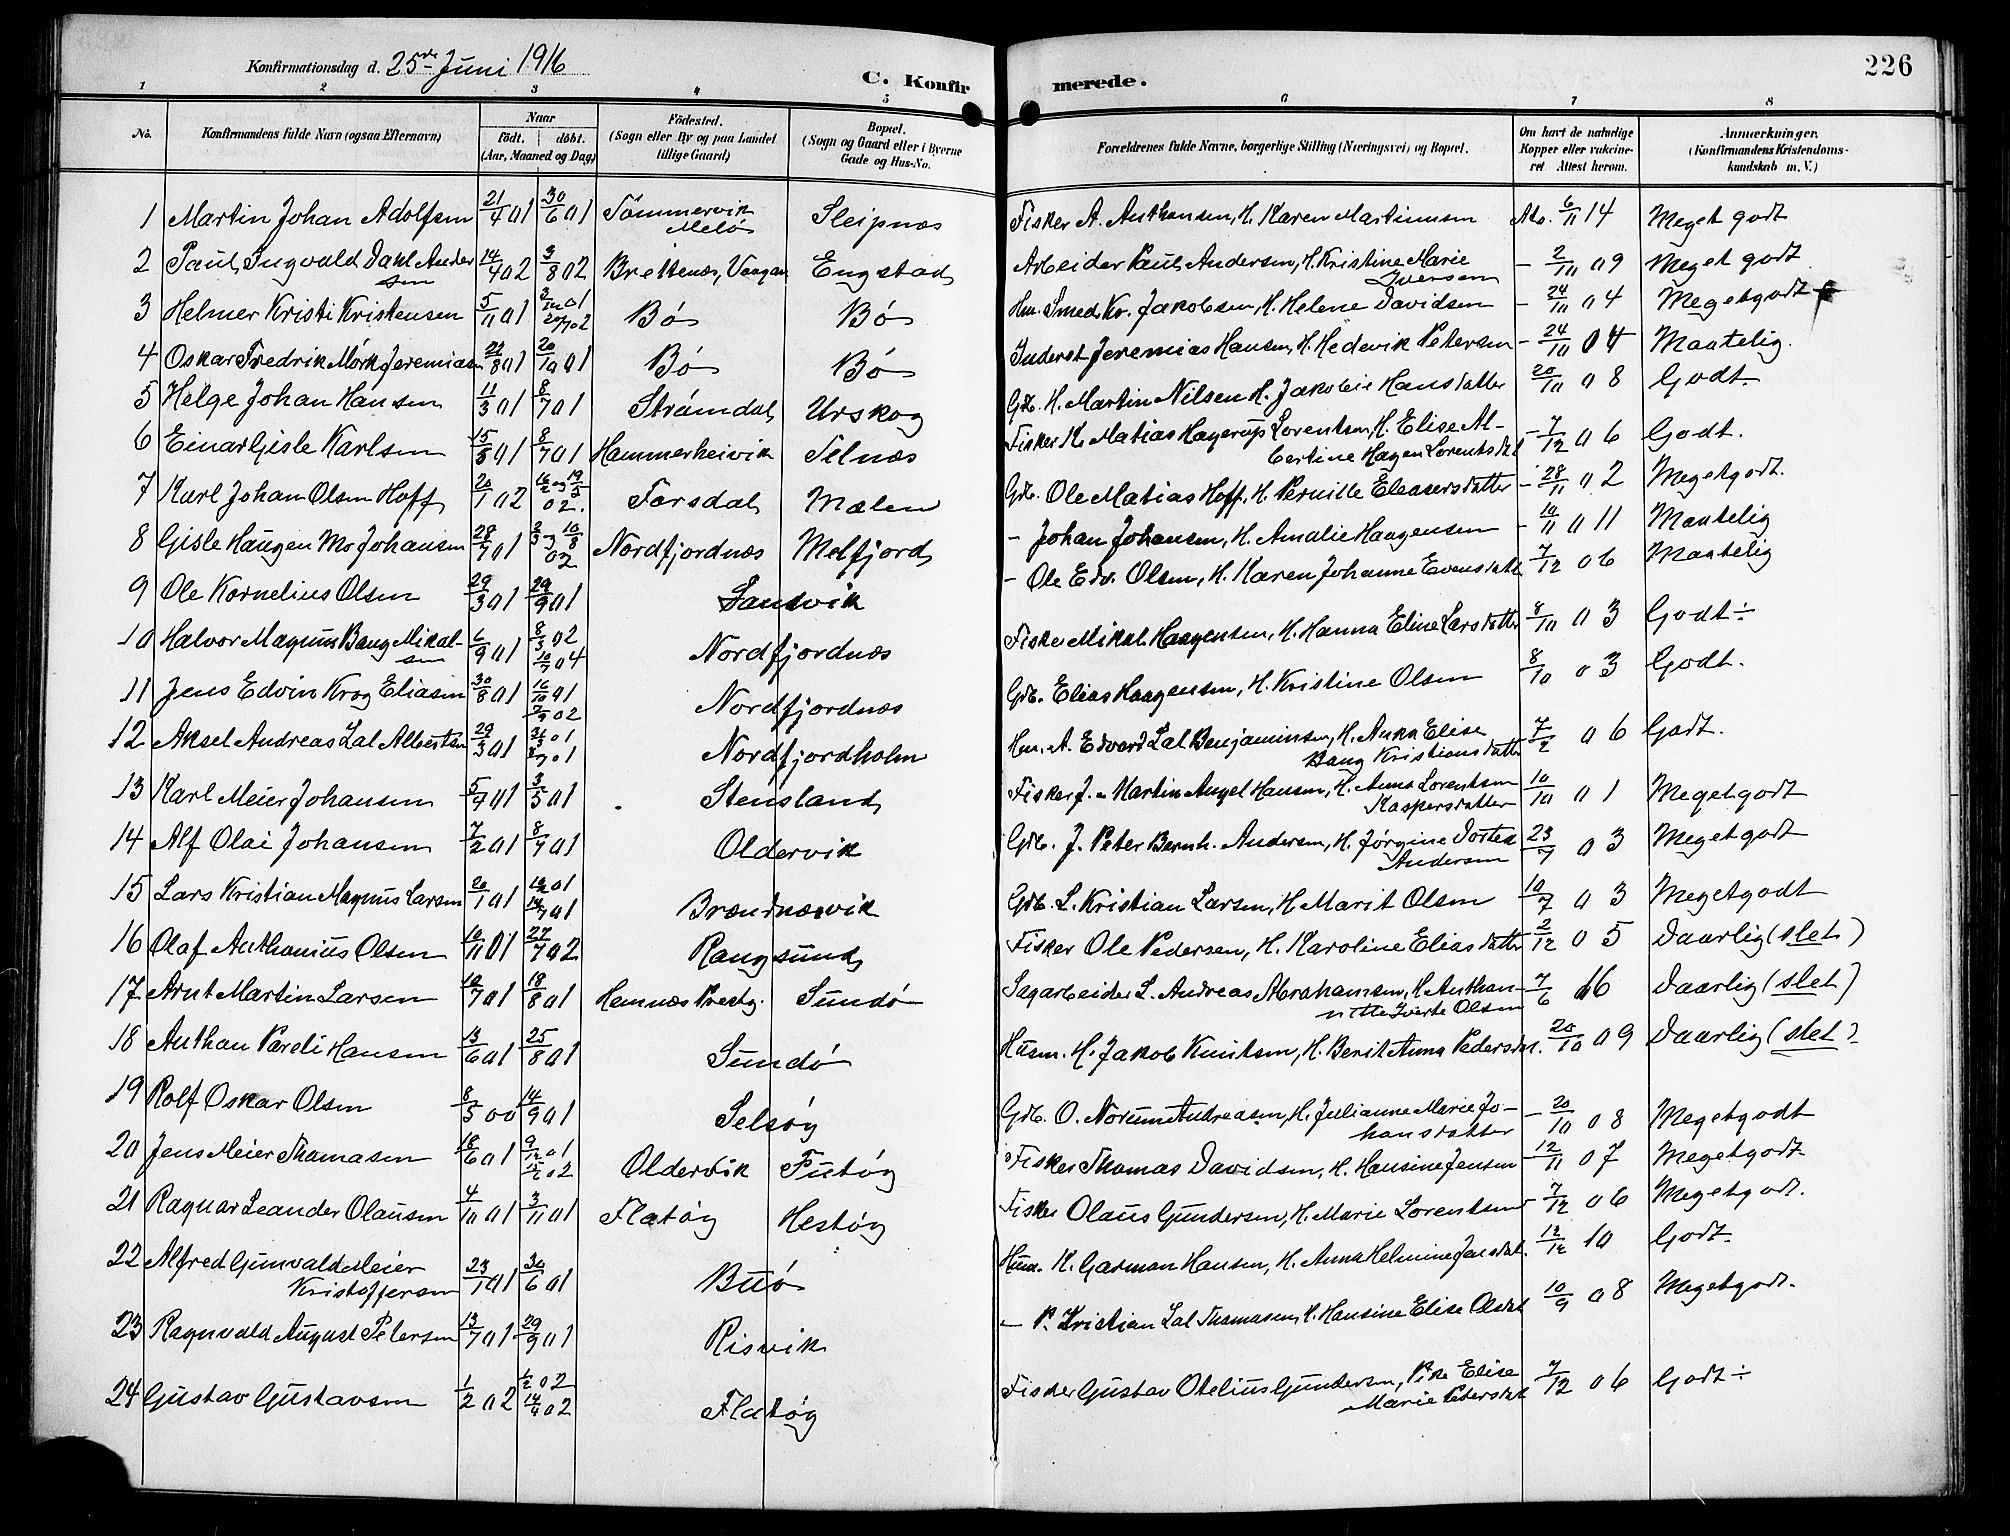 Konfirmationsdag d. 25de Juni 1916
C. Konfirmerede.
226
1 2 3 4 5 6 7 8
No.
Konfirmandens fulde Navn (ogsaa Efternavn)
Naar
födt. döbt.
(Aar, Maaned og Dag)
Födested.
(Sogn eller By og paa Landet
tillige Gaard)
Bopæl.
(Sogn og Gaard eller i Byerne
Gade og Hus-No.
Forældrenes fulde Navne, borgerlige Stilling (Næringsvei) og Bopæl.
Om havt de naturlige
Kopper eller vakcine-
ret Attest herom.
Anmærkninger.
(Konfirmandens Kristendoms-
kundskab m. V.)
1 Martin Johan Adolfsen 21/4 01 30/6 01 Tömmervik Melö Sleipnæs Fisker A. Anthonsen, H. Karen Martinusen 6/11 14 Meget godt
2 Paul Ingvald Dahl Andersen 14/4 02 3/8 02 Brettenæs, Vaagan Engstad Arbeider Paul Andersen, H. Kristine Marie Iversen - 2/10 09 Meget godt
3 Helmer Kristi Kristensen 5/11 01 Bö Bö Hm. Smed Kr. Jakobsen, H. Helene Davidsen - 24/10 04 Megetgodt
4 Oskar Fredrik Mörk Jeremiasen 22/8 01 20/10 01 Bö Bö Inderst Jeremias Hansen, H. Hedevik Petersen - 24/10 04 Maatelig.
5 Helge Johan Hansen 11/3 01 8/7 01 Strömdal Urskog Gdb. H. Martin Nilsen H. Jakobie Hansdatter 20/10 08 Godt.
6 Einar Gisle Karlsen 15/5 01 8/7 01 Hammerheivik Telnæs Fisker K. Matias Hagerup Lorentsen, H. Elise Albertine Hagen Lorentsdat - 7/12 06 Godt.
7 Karl Johan Olsen Hoff 20/1 02 16/2 og 19/5 02. Forsdal Mælen Gdb. Ole Matias Hoff, H. Pernille Eleasersdatter - 28/11 02 Megetgodt.
8 Gisle Haugen Mo Johansen 28/7 01 2/3 og 10/8 02 Nordfjordnæs Melfjord - Johan Johansen, H. Amalie Haagensen - 10/11 011 Maatelig
9 Ole Kornelius Olsen 29/3 01 29/9 01 Sandvik - Ole Edv. Olsen, H. Karen Johanne Evensdatt 7/12 06 Maatelig
10 Halvor Magnus Bang Mikalsen 6/9 01 8/3 02 10/7 04 Nordfjordnæs Fisker Mikal Haagensen, H. Hanna Eline Larsdatter 8/10 03 Godt ÷
11 Jens Edvin Krog Eliasen 30/8 01 16/10 01 7/9 02 Nordfjordnæs Gdb. Elias Haagensen, H. Kristine Olsen 8/10 03 Godt.
12 Aksel Andreas Lal Albertsen 29/3 01 31/3 01 8/7 01 Nordfjordholm Hm. A. Edvard Lal Benjaminsen, H. Anna Elise Bang Kristiansdatter 7/2 06 Godt.
13 Karl Meier Johansen 5/4 01 3/5 01 Stensland Fisker J. Martin Angel Hansen, H. Anna Lorentsen Kaspersdatter 10/10 01 Megetgodt
14 Alf Olai Johansen 7/2 01 8/7 01 Oldervik Gdb. J. Peter Bernh. Andersen, H. Jørgine Dortea Andersen 23/7 03 Megetgodt
15 Lars Kristian Magnus Larsen 20/1 01 10/2 01 14/7 01 Brændnæsvik Gdb. L. Kristian Larsen, H. Marit Olsen 10/7 03 Megetgodt
16 Olaf Anthonius Olsen 10/11 01 27/7 02 Rangsund Fisker Ole Pedersen, H. Karoline Eliasdatter 2/12 05 Daarlig (slet)
17 Arnt Martin Larsen 10/7 01 18/8 01 Hemnæs Prestg. Sundö Sagarbeider L. Andreas Abrahamsen, H. Anthannitte Iverte Olsen 7/6 16 Daarlig (slet)
18 Anthon Pareli Hansen 13/6 01 25/8 01 Sundö Husm. H. Jakob Knutsen, H. Berit Anna Pedersdat. 20/10 09 Daarlig (slet)
19 Rolf Oskar Olsen 8/5 00 14/9 01 Selsöy Gdb. O. Norum Andreasen, H. Julianne Marie Johansdatter - 20/10 08 Megetgodt
20 Jens Meier Thomasen 18/6 01 9/12 01 Oldervik Futöy Fisker Thomas Davidsen, H. Hansine Jensen - 12/11 07 Megetgodt
21 Ragnar Leander Olausen 4/10 01 3/11 01 Flatöy Hestöy Fisker Olaus Gundersen, H. Marie Lorentsen 7/12 06 Megetgodt.
22 Alfred Gunvald Meier Kristoffersen 23/1 01 30/6 01 Buö Husm. K. Garman Hansen, H. Anna Helmine Jensdat. 12/12 10 Godt.
23 Ragnvald August Petersen 13/7 01 29/9 01 Risvik - P. Kristian Lal Thomasen, H. Hansine Elise Olsdat 10/9 08 Megetgodt.
24 Gustav Gustavsen 1/2 02 14/4 02 Flatöy Fisker Gustav Otelius Gundersen, Pike Elise Marie Petersdat 7/12 06 Godt ÷